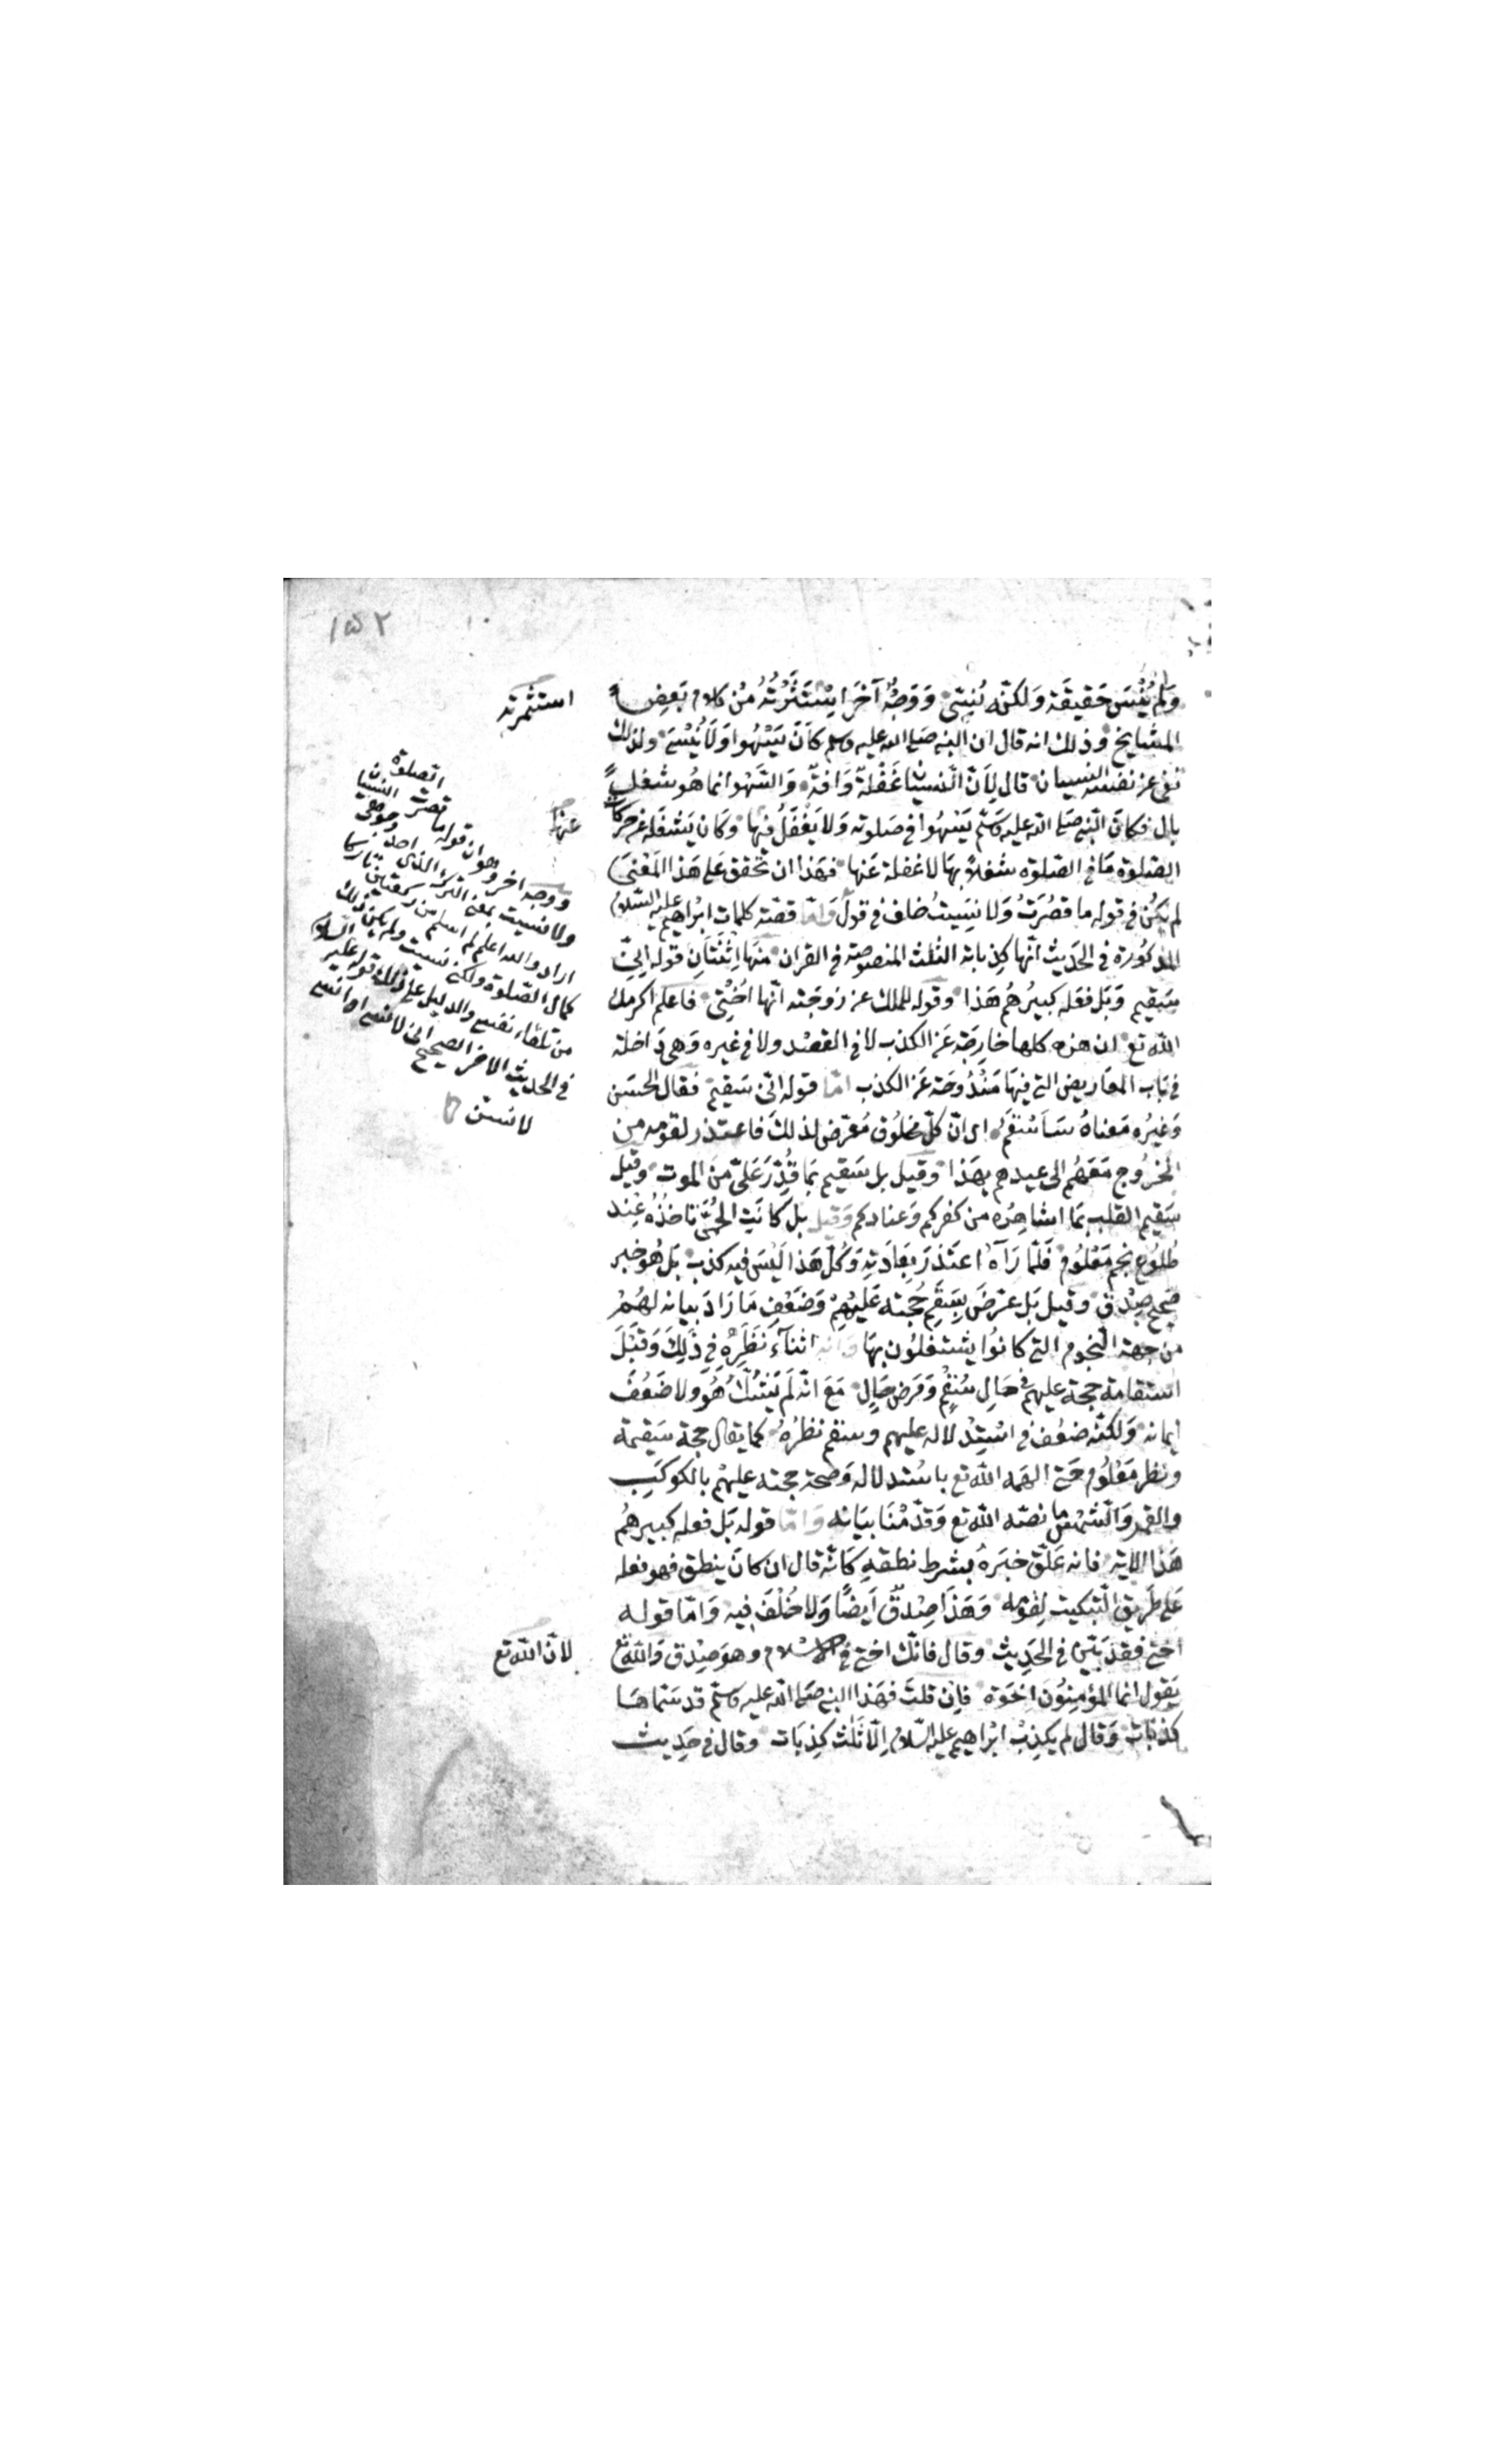 ١٥٢
وَلَمْ يُنْسَ حَقيقَة وَلكنّه نُسِّيَ وَوَجْهٌ آخَرَ اسْتَثَرْتُهُ مِنْ كلام بَعضِ
المشايخ وذلك انه قال ان النبي صَلى الله عليه وسلم كَانَ يَسْهُوا وَلَا يَنْسَى ولذلك
نفى عن نفسه النسيان قال لِاَنَّ النّسيان غَفْلَة وَافَة وَالسَّهْو انما هُو شغلُ
بال فكانَ النّبي صَلى الله عليه وَسَلّم يَسْهُوا في صَلوته وَلا يَغْفَلُ فيهَا وكَان يَشْغَله عن حركات
الصّلوة مَا في الصّلوة شغلاً بهَا لا غفلة عَنها فهَذا ان تحقق عَلى هَذا المَعْنَى
لم يكُن في قوله ما قصُرَتْ وَلا نسَيتُ خلف في قول وَامّا قصّة كلمات ابراهيم عليه السّلام
المذكورة في الحَديث انّها كذباته الثلث المنصوصة في القران منهَا اِثْنَتَانِ قوله اِنّي
سَقيم وَبَل فعَله كبيرُهُم هَذا وقوله للملك عن زوجَته انّها اُخْتِي فاعلَم اكرمك
الله تع ان هذه كلها خارجَة عَن الكذب لا في القصْد ولا في غيره وَهي دَاخلة
في بَاب المعَاريض التي فيهَا مَنْدُوحَة عَن الكذب امّا قوله اني سَقيم فقال الحسَن
وَغيرُه مَعناهُ سَاَسْقَمُ اى انّ كلّ مخلُوق مُعَرّض لذلكَ فاعتذر لقومه من
الخرُوج مَعَهُم الى عيدهم بهَذا وقيل بل سَقيم بمَا قُدِّرَ عَلَىَّ مِنَ الموت وقيل
سَقيم القلب بمَا اشاهِدُه من كفركم وَعنادكم وَقيل بَل كانَت الحُمَّى تاخذُهُ عِنْد
طُلوُع نجم مَعْلُوم فَلَمّا رَآهُ اعتَذَرَ بِعَادَتِهِ وَكُلُّ هَذا لَيْسَ فيه كذب بَل هُو خبر
صَحيح صِدْق وقيل بَل عَرَّضَ بِسَقَمِ حُجّته عَلَيْهِمْ وَضَعْفِ مَا رَادَ بيانه لهُمْ
من جهة النّجوم التي كانوُا يشتغلوُن بهَا وَانه اثنآءَ نَظَرِهُ في ذَلِكَ وَقَبْلَ
استقامة حجة عليهم في حَالِ سُقْمٍ وَمَرَض حَالٍ مَعَ انّه لَمْ يَشُكَّ هُوَ ولا ضَعُفَ
ايمانه وَلكنّه ضعُف في اسْتِدْلاله عليهم وسقم نظرُهُ كما يقال حجة سَقيمة
ونظر مَعْلُوم حَتى الهَمه الله تع باسْتدلاله وَصحة حجته عليهُم بالكوكبِ
والقمر وَالشّمس ما نصّه الله تع وَقدّمْنَا بيَانه وَامّا قوله بَل فعله كبيرهُم
هَذا الاية فانه عَلّق خبَرهُ بشرط نطقهِ كَانّه قال ان كَانَ ينطق فهو فعله
عَلى طَريق التّبكيت لِقوْمه وَهَذَا صِدْقٌ اَيضًا وَلا خُلْفَ فيِه وَامّا قوله
اختي فقد بَيّن في الحَديث وقال فانّك اختي في الاسلام وهوَ صِدْق وَالله تع
يَقول انما المؤمِنوُنَ اِخوَة فَاِن قلت فهَذا النبي صَلى الله عليه وسَلّم قد سَمّاهَا
كذبَات وَقال لم يكذبْ ابْراهيم عليه السّلام اِلاّ ثَلث كِذبَات وقال في حَديث
استثمرته
عنها
ووجه اخر وهو ان قوله ما قصرت الصلوة
ولا نسيت بمعنى الترك الذى احد وجهى النسيان
اراد والله اعلم لم اسلم من ركعتين تاركا
كمال الصّلوة ولكني نسيت ولم يكن ذلك
من تلقاء نفسى والدليل على ذلك قوله عليه السلام
في الحديث الاخر الصحيح انى لانسى او انسى
لاسن
لانّ الله تع